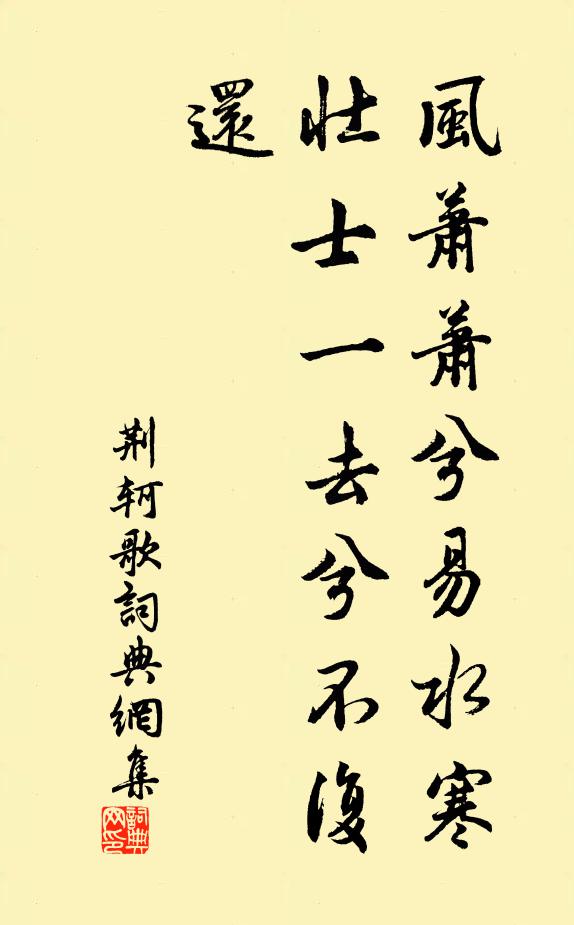 風蕭蕭兮易水寒
壯士一去兮不復
還
荆軻歌詞典網集
詞典网印